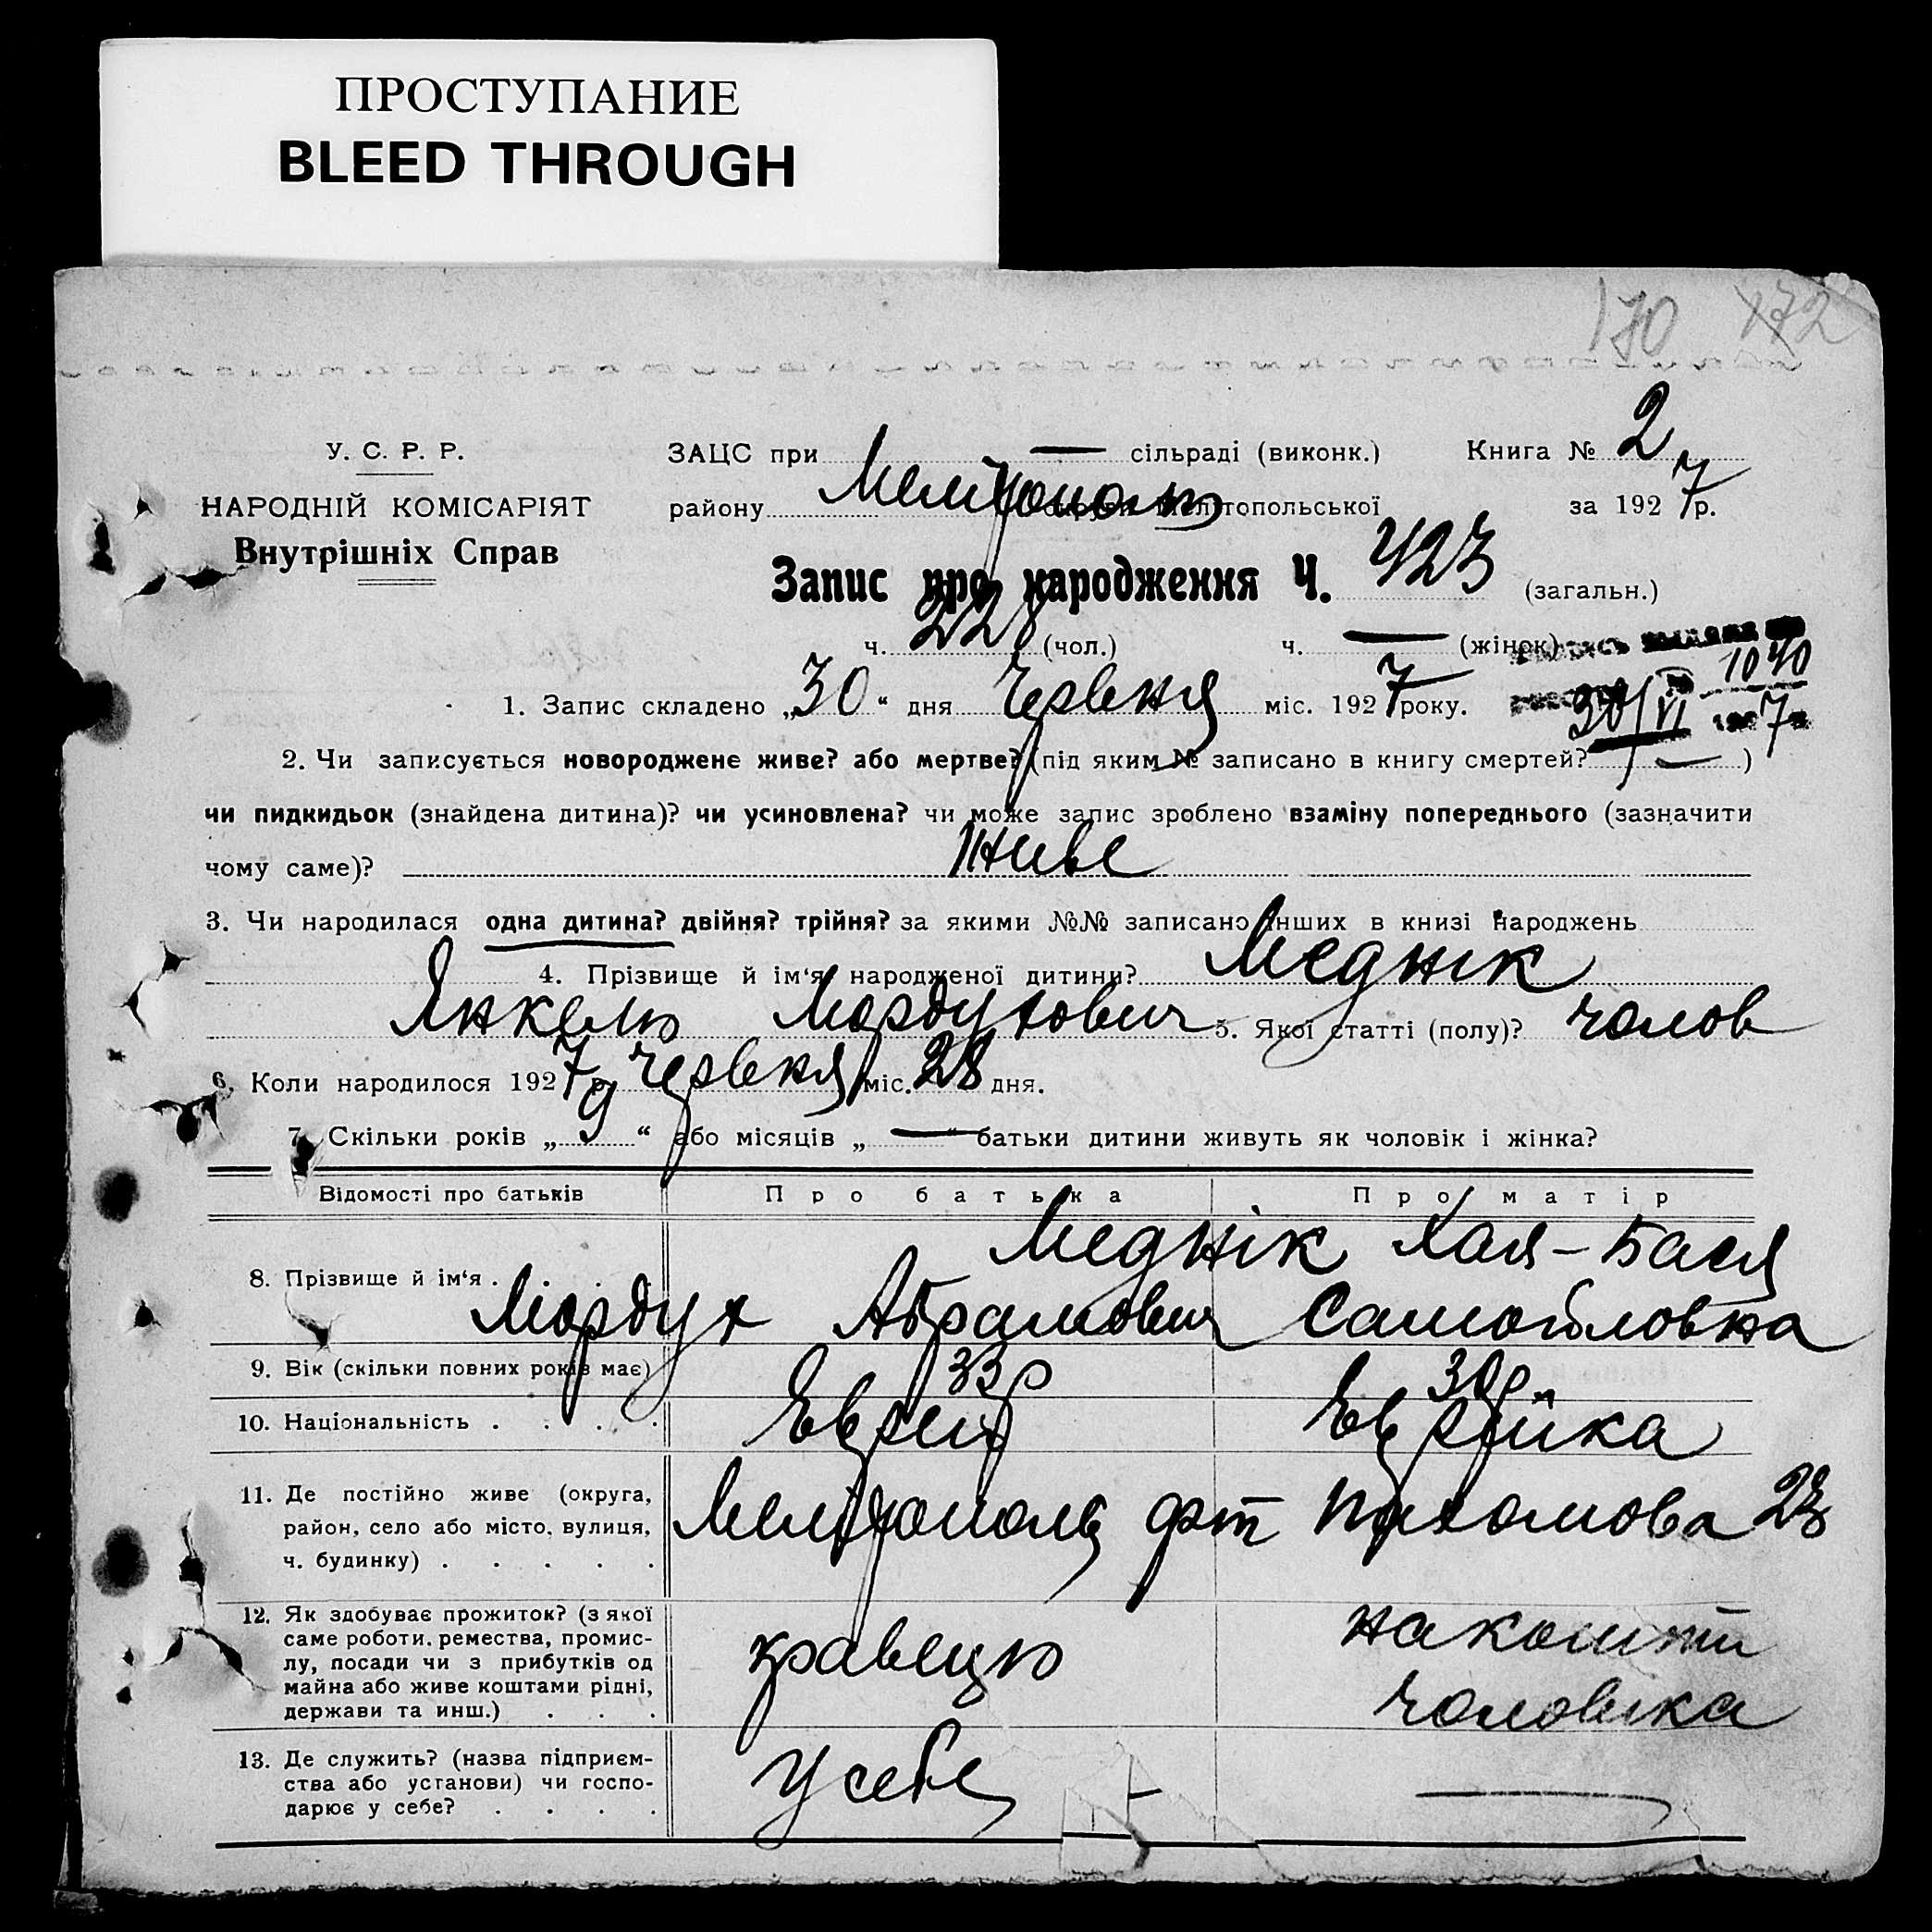 ПРОСТУПАНИЕ
BLEED THROUGH
170 172
У. С. Р. Р.
НАРОДНІЙ КОМІСАРІЯТ
Внутрішніх Справ
ЗАЦС при — сільраді (виконк.)
Книга № 2
району Мелітополь округи Мелітопольської
за 1927 р.
Запис про народження Ч. 423 (загальн.)
ч. 228 (чол.) ч. — (жінок)
1040
1. Запис складено „30“ дня Червня міс. 1927 року.
30/VI 7
2. Чи записується новороджене живе? або мертве? (під яким № записано в книгу смертей? — )
чи пидкидьок (знайдена дитина)? чи усиновлена? чи може запис зроблено взаміну попереднього (зазначити
чому саме)? Живе
3. Чи народилася одна дитина? двійня? трійня? за якими №№ записано інших в книзі народжень
4. Прізвище й ім‘я народженої дитини? Меднік
Янкель Мордухович 5. Якої статті (полу)? чолов
6. Коли народилося 1927 р. Червня міс. 28 дня.
7. Скільки років „9“ або місяців „—“ батьки дитини живуть як чоловік і жінка?
Відомості про батьків Про батька Про матір
8. Прізвище й ім‘я .
Меднік Хая-Бася
Мордух Абрамович Самойловна
9. Вік (скільки повних років має) 33 р 30 р.
10. Національність . . . . Еврей Еврейка
11. Де постійно живе (округа,
район, село або місто, вулиця,
ч. будинку) . . . . .
Мелітополь Пахомова 23
12. Як здобуває прожиток? (з якої
саме роботи, ремества, промис-
лу, посади чи з прибутків од
майна або живе коштами рідні,
держави та инш.) . . .
кравець
на кошти
чоловіка
13. Де служить? (назва підприєм-
ства або установи) чи госпо-
дарює у себе? . . . .
У себе —